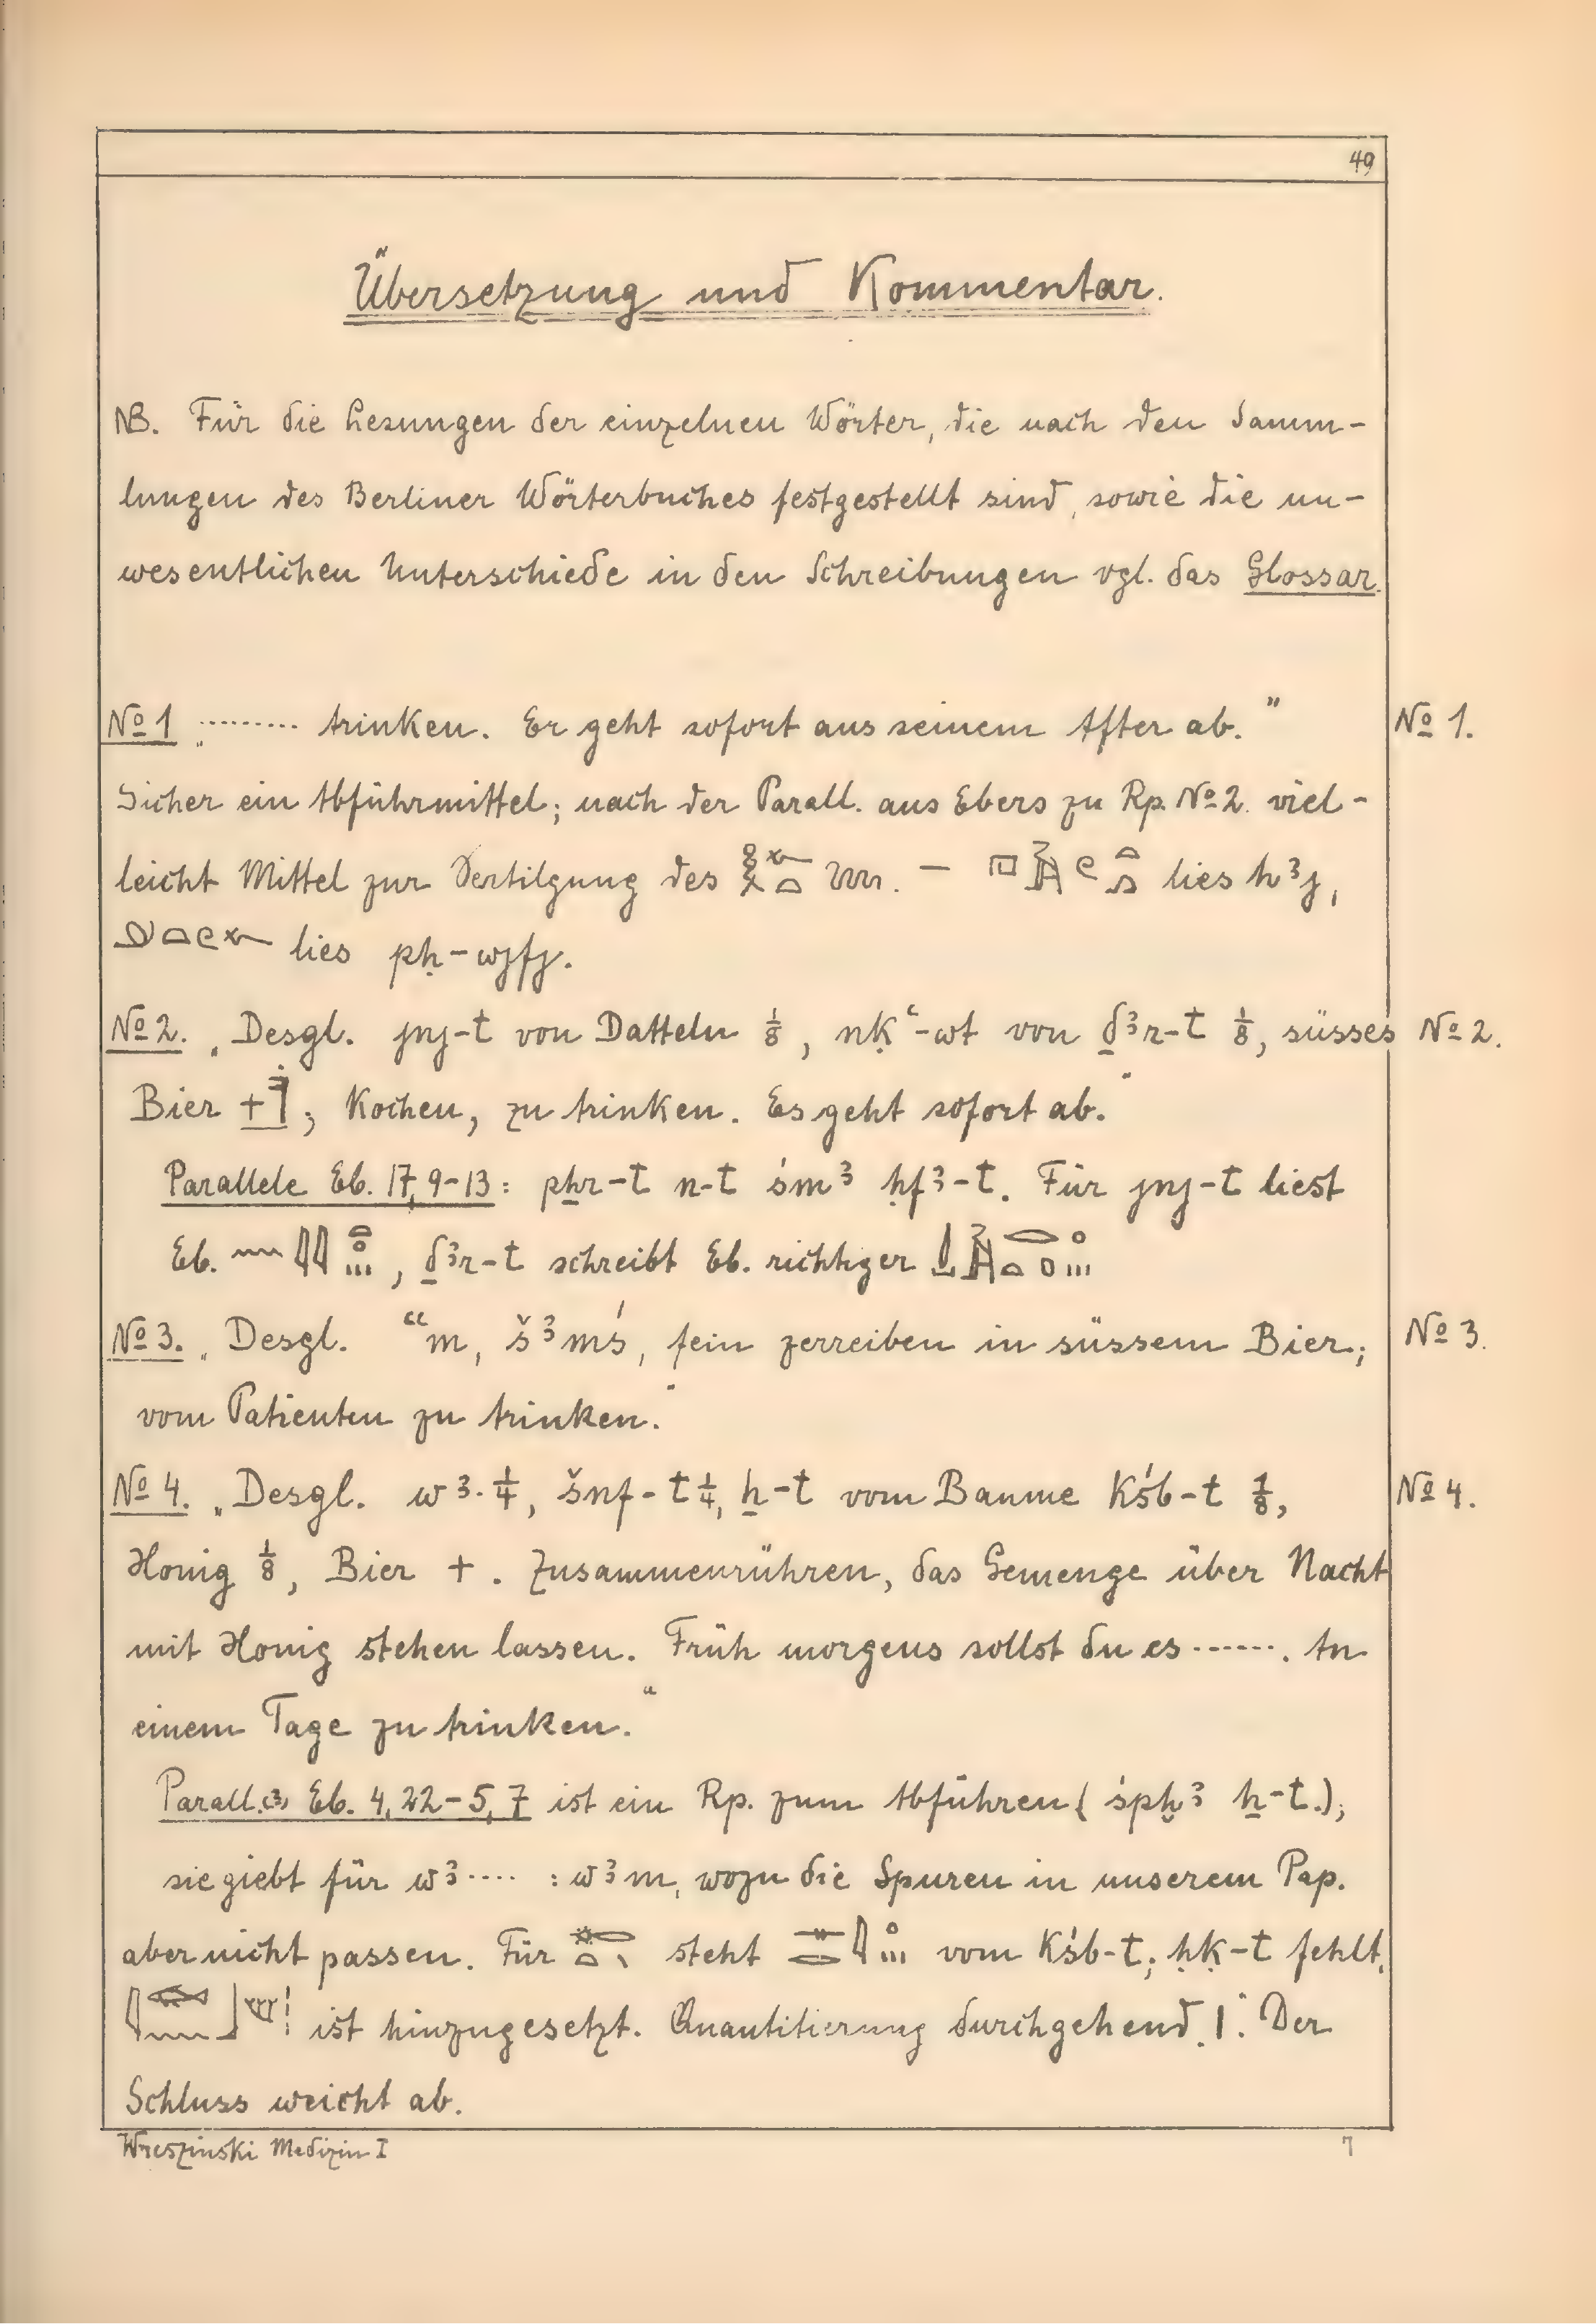 49
Übersetzung und Kommentar.
NB. Für die Lesungen der einzelnen Wörter, die nach den Samm-
lungen des Berliner Wörterbuches festgestellt sind, sowie die un-
wesentlichen Unterschiede in den Schreibungen vgl. das Glossar.
№ 1 „ ········· trinken. Er geht sofort aus seinem After ab.” № 1.
Sicher ein Abführmittel; nach der Parall. aus Ebers zu Rp. № 2. viel-
leicht Mittel zur Vertilgung des — lies hꜣj,
lies pḥ-wjfj.
№ 2. „Desgl. jnj-t von Datteln ⅛, nḳꜥ-wt von ḏꜣr-t ⅛, süsses № 2.
Bier +; Kochen, zu trinken. Es geht sofort ab.“
Parallele Eb. 17, 9-13: pẖr-t n-t śmꜣ ḥfꜣ-t. Für jnj-t liest
Eb. , ḏꜣr-t schreibt Eb. richtiger
№ 3. „Desgl. ꜥꜥm, šꜣmś, fein zerreiben in süssem Bier; № 3.
vom Patienten zu trinken.“
№ 4. „Desgl. wꜣ· ¼, šnf-t ¼, ẖ-t vom Baume Kśb-t ⅛, № 4.
Honig ⅛, Bier +. Zusammenrühren, das Gemenge über Nacht
mit Honig stehen lassen. Früh morgens sollst du es ······. An
einem Tage zu trinken.“
Parall. Eb. 4, 22-5, 7 ist ein Rp. zum Abführen (śpḫꜣ ẖ-t.);
sie giebt für wꜣ···· : wꜣm, wozu die Spuren in unserem Pap.
aber nicht passen. Für steht vom Kśb-t; ḥḳ-t fehlt,
ist hinzugesetzt. Quantitierung durchgehend „I“. Der
Schluss weicht ab.
Wreszinski Medizin I 7